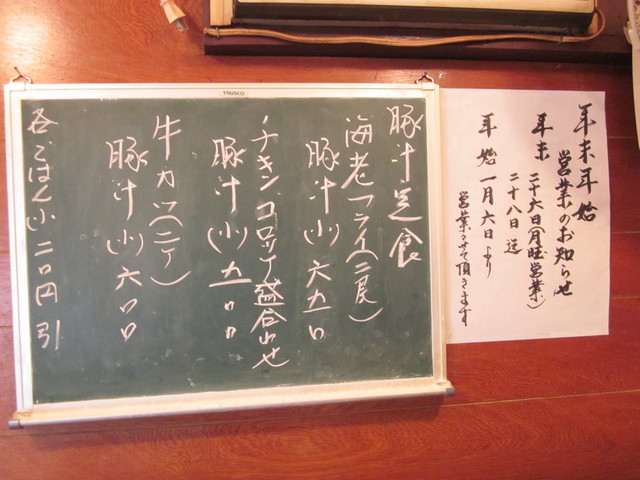 TRUSCO
豚汁定食
海老フライ(二尾)
豚汁(小)六五〇
チキンコロッケ盛合わせ
豚汁(小)五〇〇
牛カツ(二ケ)
豚汁(小)六〇〇
各ごはん小二〇円引
年末年始
営業のお知らせ
年末 二十六日(月曜営業)
二十八日迄
年始 一月六日より
営業させて頂きます